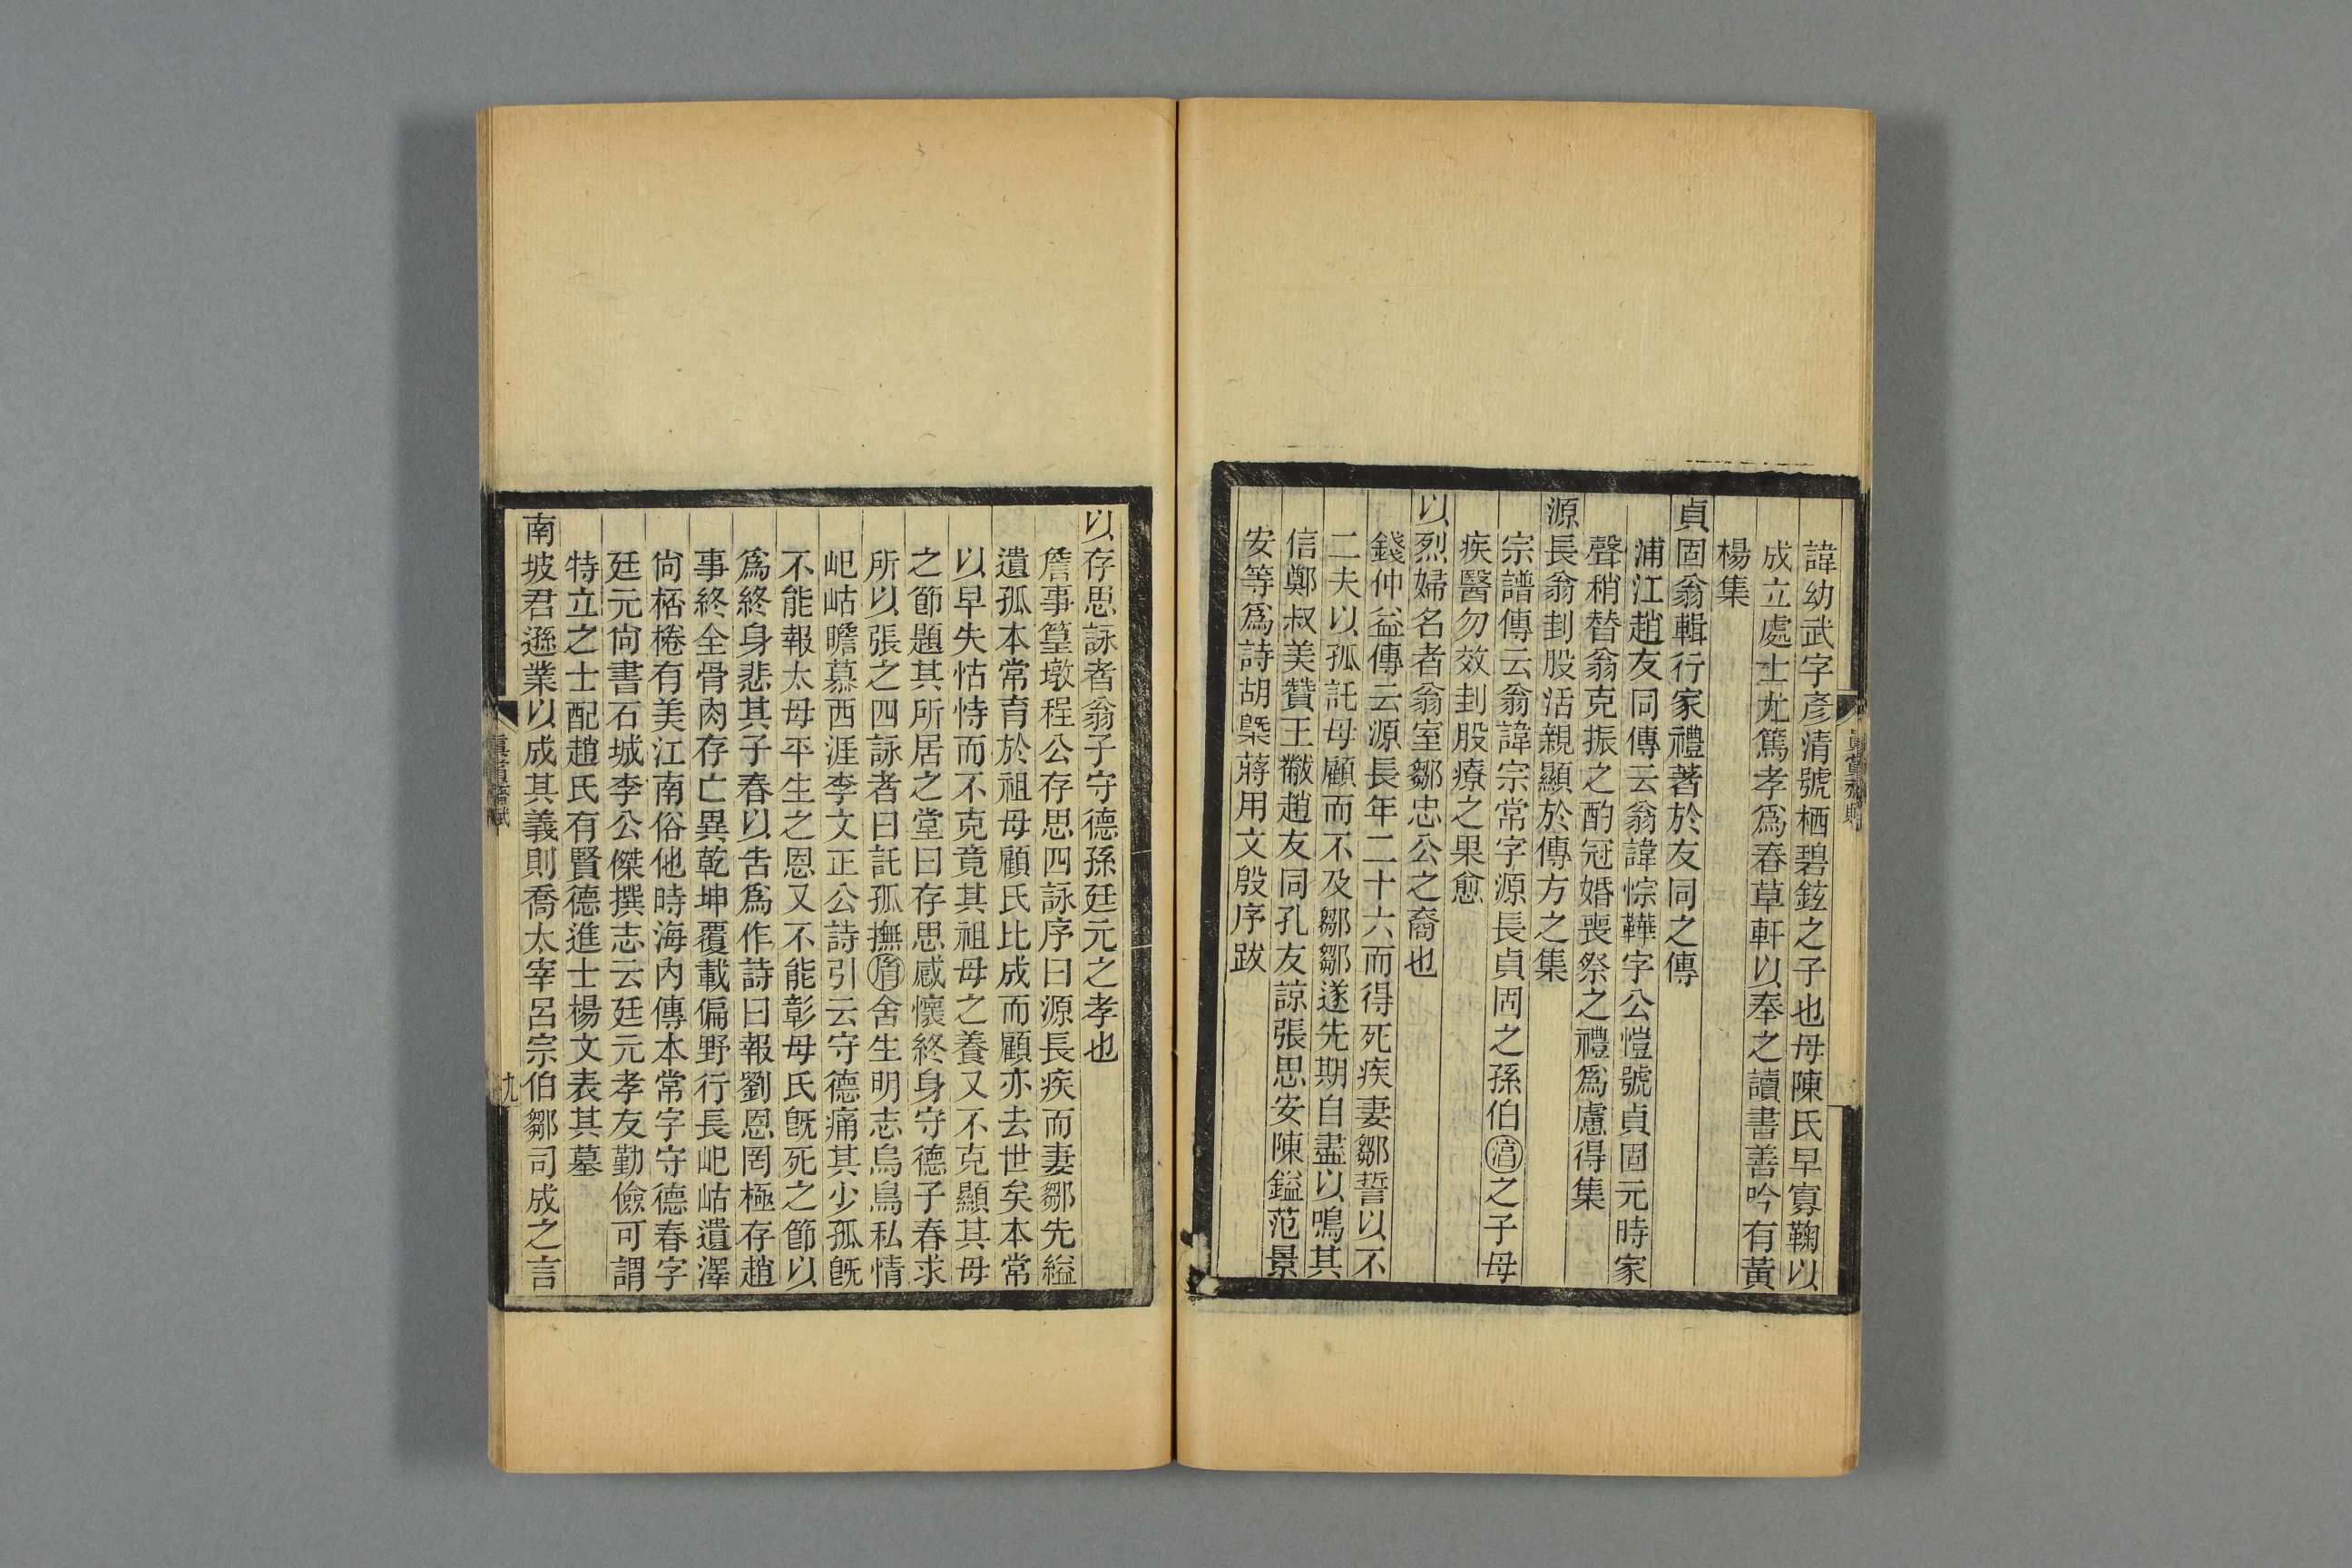 諱幼武字彥清號栖碧鉉之子也母陳氏早寡鞠以
成立處士尤篤孝爲春草軒以奉之讀書善吟有黃
楊集
貞固翁輯行家禮著於友同之傳
浦江趙友同傳云翁諱悰韡字公愷號貞固元時家
聲稍替翁克振之酌冠婚喪祭之禮爲慮得集
源長翁刲股活親顯於傳方之集
宗譜傳云翁諱宗常字源長貞固之孫伯之子母
疾醫勿效刲股療之果愈
以烈婦名者翁室鄒忠公之裔也
錢仲益傳云源長年二十六而得死疾妻鄒誓以不
二夫以孤託母顧而不及鄒鄒遂先期自盡以鳴其
信鄭叔美贊王黻趙友同孔友諒張思安陳鎰范景
安等爲詩胡槩蔣用文殷序跋
以存思詠者翁子守德孫廷元之孝也
詹事篁墩程公存思四詠序曰源長疾而妻鄒先縊
遺孤本常育於祖母顧氏比成而顧亦去世矣本常
以早失怙恃而不克竟其祖母之養又不克顯其母
之節題其所居之堂曰存思感懷終身守德子春求
所以張之四詠者曰託孤撫舍生明志烏鳥私情
屺岵瞻慕西涯李文正公詩引云守德痛其少孤旣
不能報太母平生之恩又不能彰母氏旣死之節以
爲終身悲其子春以告爲作詩曰報劉恩罔極存趙
事終全骨肉存亡異乾坤覆載偏野行長屺岵遺澤
尙桮棬有美江南俗他時海內傳本常字守德春字
廷元尙書石城李公傑撰志云廷元孝友勤儉可謂
特立之士配趙氏有賢德進士楊文表其墓
南坡君遜業以成其義則喬太宰呂宗伯鄒司成之言
九